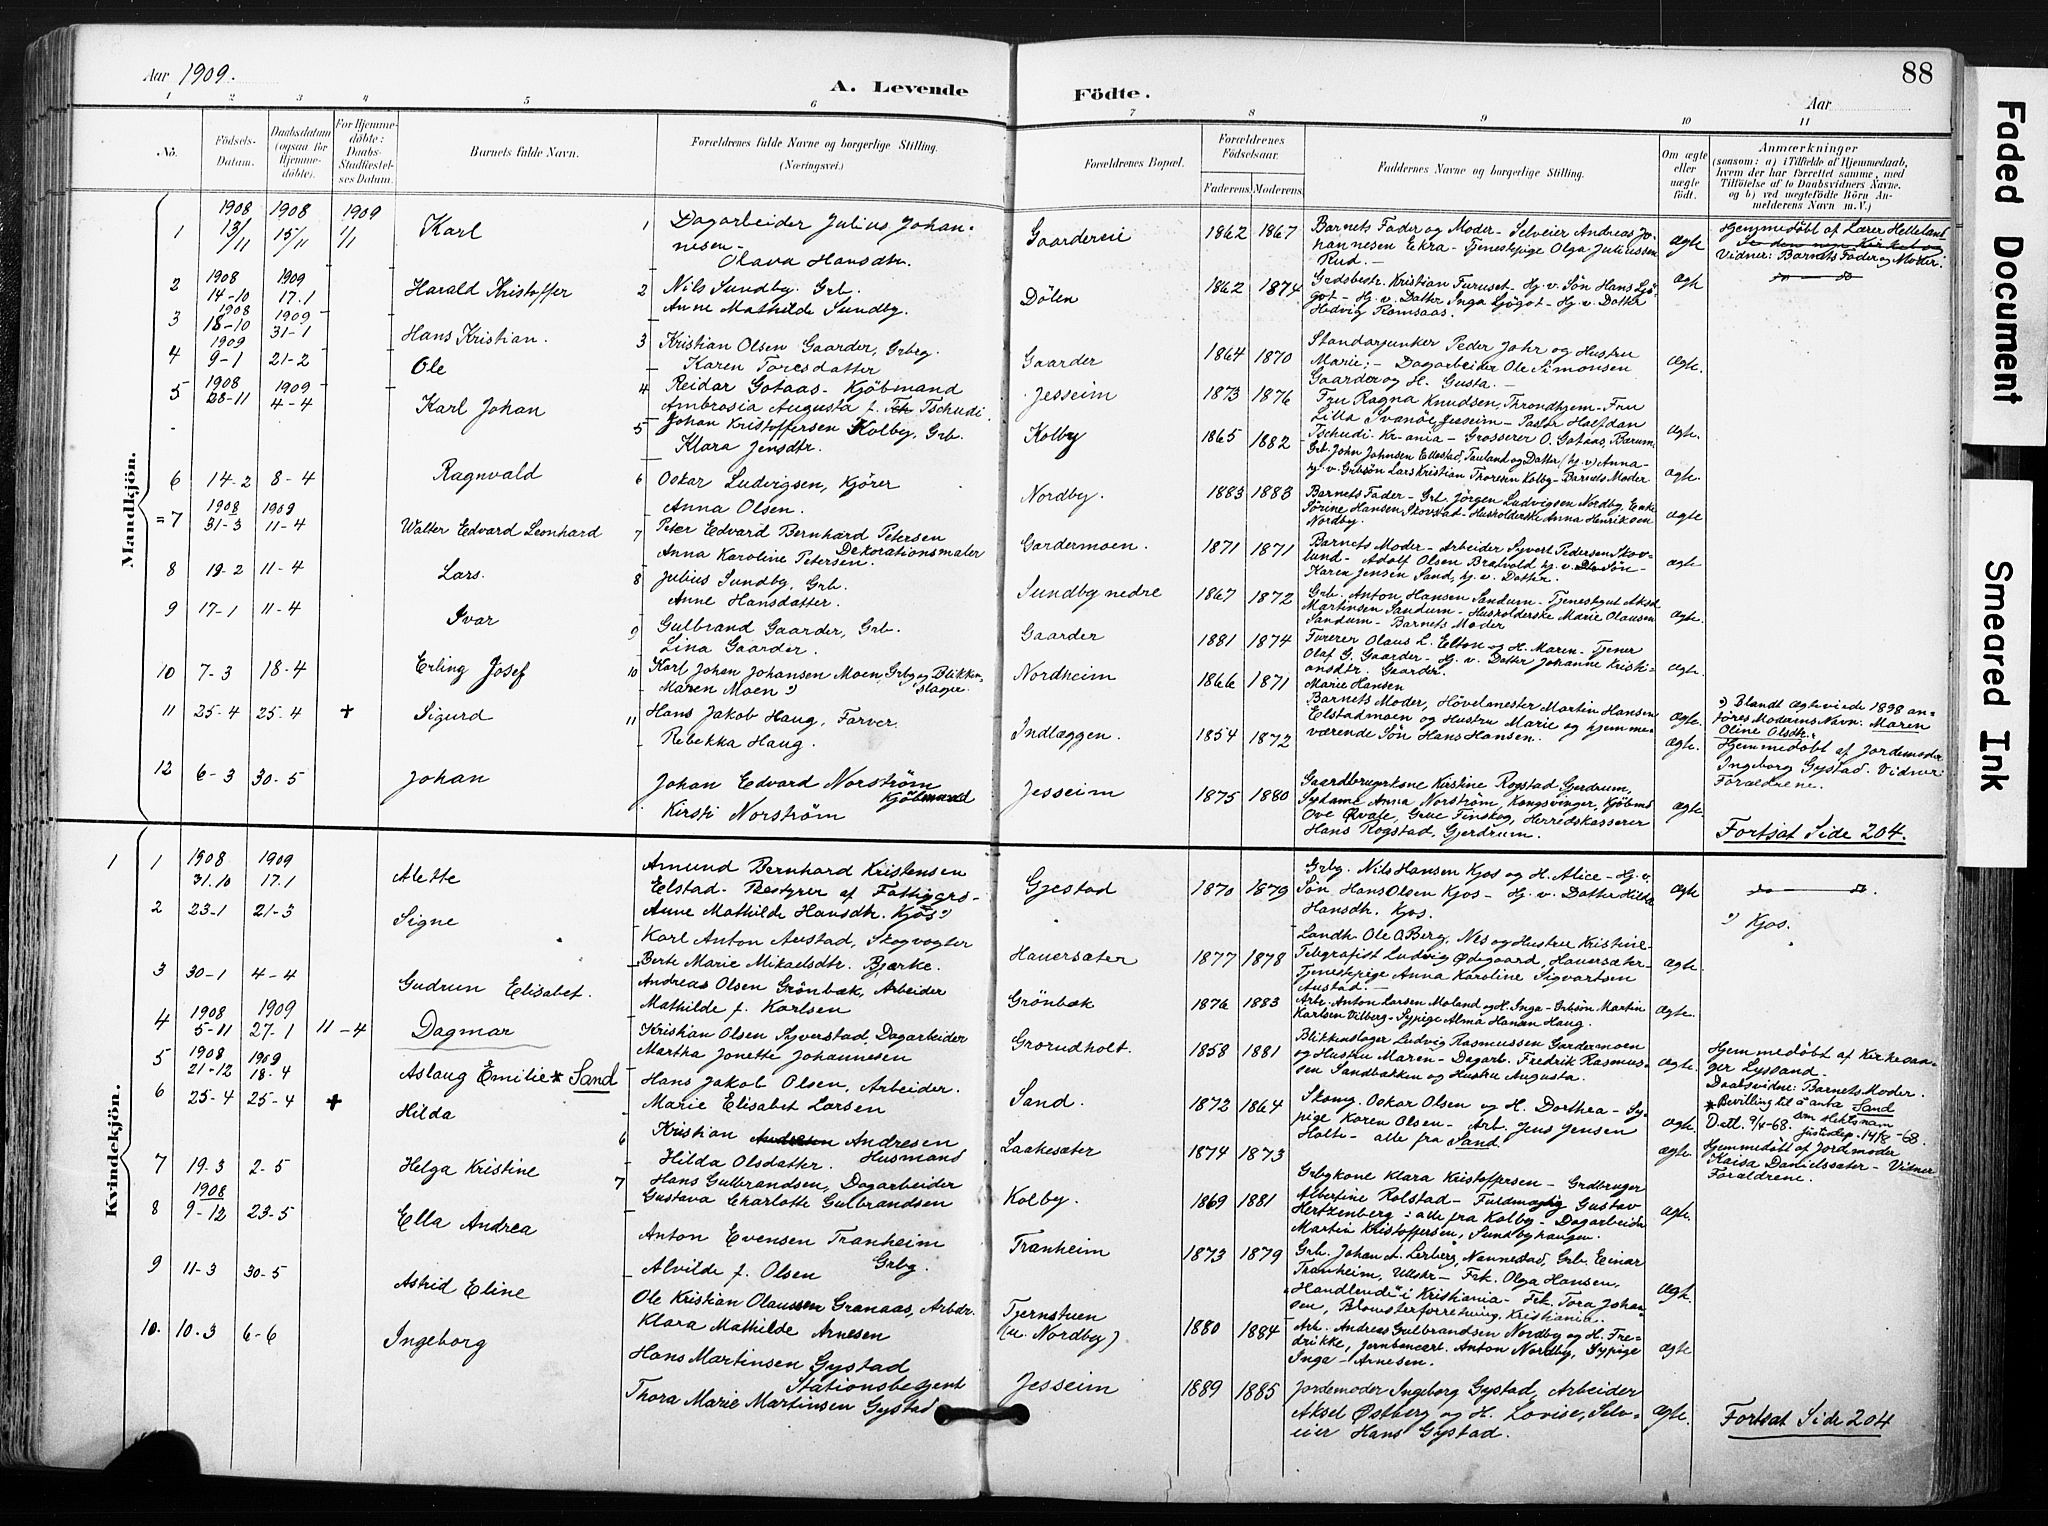 Aar 1909.
A. Levende
Födte.
Aar
88
1 2 3 4 5 6 7 8 9 10 11
No.
Födsels-Datum.
Daabsdatum (ogsaa for Hjemmedöbte).
For Hjemmedöbte: Daabs-Stadfestelses Datum.
Barnets fulde Navn.
Forældrenes fulde Navne og borgerlige Stilling. (Næringsvei.)
Forældrenes Bopæl.
Forældrenes Födselsaar.
Faderens. Moderens.
Faddernes Navne og borgerlige Stilling.
Om ægte eller uægte født.
Anmærkninger
(saasom: a) i Tilfælde af Hjemmedaab, hvem der har forrettet samme, med Tilföielse af to Daabsvidners Navne, og b) ved uægtefödte Börn Anmelderens Navn m.V.)
Mandkjön.
1 1908 13/11 1908 15/11 1909 1/1 Karl
1 Dagarbeider Julius Johannesen - Olava Hansdtr.
Gaardereie 1862 1867
Barnets Fader og Moder - Selveier Andreas Johannesen Ekra - Tjenestepige Olga Juliussen Rud. -
ægte
Hjemmedöbt af Lærer Helleland
Vidner: Barnets Fader og Moder.
2 1908 14-10 1909 17.1 Harald Kristoffer
2 Nils Sundby. Grb.
Anne Mathilde Sundby.
Dölen 1862 1874
Grdsbestr. Kristian Furuset - Hj. v. Sön Hans Ljögot - Hj. v. Datter Inga Ljögot - Hj. v. Dotter Hedvig Romsaas.
ægte
do do
3 1908 18-10 1909 31-1 Hans Kristian.
3 Kristian Olsen Gaarder, Grbrg.
Karen Toresdatter
Gaarder 1864 1870
Standarjunker Peder Johr og Hustru Marie; - Dagarbeider Ole Simonsen Gaarder og H. Gusta. -
ægte.
4 1909 9-1 21-2 Ole
4 Reidar Gotaas - Kjöbmand
Ambrosia Augusta f. Tschudi
Jesseim 1873 1876
Fru Ragna Knudsen, Throndhjem - Fru Lilla Svanöe, Jesseim - Pastor Halfdan Tschudi - Kr-ania - Grosserer O. Gotaas, Bærum.
ægte.
5 1908 28-11 1909 4-4 Karl Johan
5 Johan Kristoffersen Kolby, Grb.
Klara Jensdtr.
Kolby 1865 1882
Grb. John Johnsen Ellestad, Tauland og Datter (hj. v) Anna - hj. v. Grbsön Lars Kristian Thoresen Kolby - Barnets Moder
ægte.
6 14-2 8-4 Ragnvald
6 Oskar Ludvigsen, Kjörer
Anna Olsen.
Nordby. 1883 1883
Barnets Fader - Grb. Jörgen Ludvigsen Nordby, Enke Sörine Hansen, Skovstad - Husholderske Anna Henriksen Nordby.
ægte
=7 1908 31-3 1909 11-4 Walter Edvard Leonhard
7 Peter Edvard Bernhard Petersen Dekorationsmaler
Anna Karoline Petersen.
Gardermoen. 1871 1871
Barnets Moder - Arbeider Syvert Pedersen Skovlund - Adolf Olsen Bratvold hj. v. Sön - Karen Jensen Sand, hj. v. Dotter.
ægte
8 19-2 11-4 Lars.
8 Julius Sundby, Grb.
Anne Hansdatter.
Sundby nedre 1867 1872
Grb. Anton Hansen Sandum - Tjenestgut Aksel Martinsen Sandum - Husholderske Marie Olausen Sandum - Barnets Moder
ægte.
9 17-1 11-4 Ivar
9 Gulbrand Gaarder, Grb.
Lina Gaarder.
Gaarder 1881 1874
Furerer Olaus L. Elton og H. Maren - Tjener Olaf G. Gaarder - Hj. v. Datter Johanne Kristiansdtr. Gaarder.
ægte.
10 7-3 18-4 Erling Josef
10 Karl Johan Johansen Moen, Grbr og Blikkenslager
Maren Moen ²)
Nordheim 1866 1871
Marie Hansen
Barnets Moder, Hövelmester Martin Hansen Elstadmoen og Hustru Marie og hjemmeværende Sön Hans Hansen.
ægte.
²) Blandt Ægteviede 1898 anföres Modams Navn: Maren Oline Olsdtr.
11 25-4 25-4 + Sigurd
11 Hans Jakob Haug, Farver.
Rebekka Haug.
Indlæggen. 1854 1872
ægte.
Hjemmedöbt af Jordemoder Ingeborg Gystad. Vidner: Forældrene.
12 6-3 30-5 Johan
Johan Edvard Norström Kjöbmand
Kirsti Norström
Jesseim 1875 1880
Gaardbrugerkone Kirstine Rogstad Gjerdrum, Sydame Anna Norström, Kongsvinger, Kjöbmd Ove Øvale, Grue Finskog, Herredskasserer Hans Rogstad, Gjerdrum.
ægte
Fortsat Side 204.
Kvindekjön.
1 1 1908 31.10 1909 17.1 Alette
Amund Bernhard Kristensen Elstad - Bestyrer af Fattiggrs -
Anne Mathilde Hansdtr. Kjös ²)
Gjestad 1870 1879
Grbg. Nils Hansen Kjos og H. Alice - Hj. v. Sön, Hans Olsen Kjos - Hj. v. Datter Hilda Hansdtr. Kjos.
ægte
do do.
²) Kjos.
2 23-1 21-3 Signe
Karl Anton Austad, Skogvogter
Berte Marie Mikaelsdtr. Bjerke.
Hauersæter 1877 1878
Landh. Ole O. Berg, Nes og Hustru Kristine - Telegrafist Ludvig Ødegaard, Hauersæter - Tjenestpige Anna Karoline Sigvartsen Austad. -
ægte.
3 30-1 4-4 Gudrun Elisabet.
Andreas Olsen Grönbæk, Arbeider
Mathilde f. Karlsen
Grönbæk 1876 1883
Arb. Anton Larsen Moland og H. Inga - Grbsön Martin Karlsen Vilberg - Sypige Alma Hansen Haug.
ægte.
4 1908 5-11 1909 27-1 11-4 Dagmar
Kristian Olsen Syverstad, Dagarbeider
Martha Jonette Johannesen
Grorudholt. 1858 1881
Blikkenslager Ludvig Rasmussen Gardermoen og Hustru Maren - Dagarb. Fredrik Rasmussen Sandbakken og Hustru Augusta.
ægte.
Hjemmedöbt af Kirkesanger Lyssand -
Daabsvidne: Barnets Moder.
5 1908 21-12 1909 18-4 Aslaug Emilie * Sand
Hans Jakob Olsen, Arbeider.
Marie Elisabet Larsen
Sand. 1872 1864
Skomg. Oskar Olsen og H. Dorthea - Sypige Karen Olsen - Arb. Jens Jensen Holte - alle fra Sand
ægte
* Bevilling til å anta Sand som slektsnavn
Justisdep. 14/8-68.
6 25-4 25-4 + Hilda
6 Kristian Andresen Husmans
Hilda Olsdatter.
Laakesæter 1874 1873
ægte.
Hjemmedöbt af Jordmoder Kaisa Danielssæter - Vidner Forældrene.
7 19-3 2-5 Helga Kristine
7 Hans Gulbrandsen, Dagarbeider
Gustava Charlotte Gulbrandsen
Kolby. 1869 1881
Grbgkone Klara Kristoffersen - Grdbruger Albertine Rolstad - Fuldmægtig Gustav Hertzenberg - alle fra Kolby - Dagarbeider Martin Kristoffersen, Sundbyhaugen.
ægte.
8 1908 9-12 23-5 Ella Andrea
Anton Evensen Tranheim Grbg.
Alvilde f. Olsen
Tranheim 1873 1879
Grb. Johan A. Lerberg, Nannestad, Grb. Einar Tranheim, Ullskr - Frk. Olga Hansen, "Handlende" i Kristiania - Frk. Tora Johansen, Blomsterforretning, Kristiania.
ægte.
9 11-3 30-5 Astrid Eline
Ole Kristian Olaussen Granaas, Arbdr.
Klara Mathilde Arnesen
Tjernstuen (u. Nordby) 1880 1884
Arb. Andreas Gulbrandsen Nordby og H. Fredrikke, Jernbanearb. Anton Nordby, Sypige Inga Arnesen.
ægte
10. 10-3 6-6 Ingeborg
Hans Martinsen Gystad Stationsbetjent
Thora Marie Martinsen Gystad
Jesseim 1889 1885
Jordemoder Ingeborg Gystad, Arbeider Aksel Østberg og H. Lovise, Selveier Hans Gystad.
ægte.
Fortsat Side 204
Faded Document
Smeared Ink